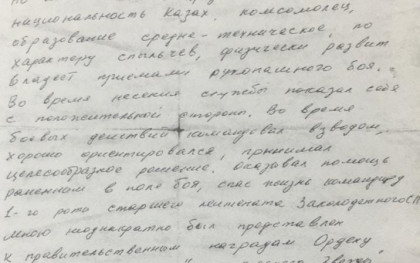 национальность казах, комсомолец,
образование средне-техническое, по
характеру вспыльчев, физически развит
владеет приемами рукопашного боя.
Во время несения службы показал себя
с положительной стороны. Во время
боевых действий командовал взводом,
хорошо ориентировался, принимал
целесообразное решение. Оказывал помощь
раненным в поле боя, спас жизнь командиру
1-го роты старшего лейтената
Мною неоднократно был представлен
к правительственным наградам Ордену
Звезды